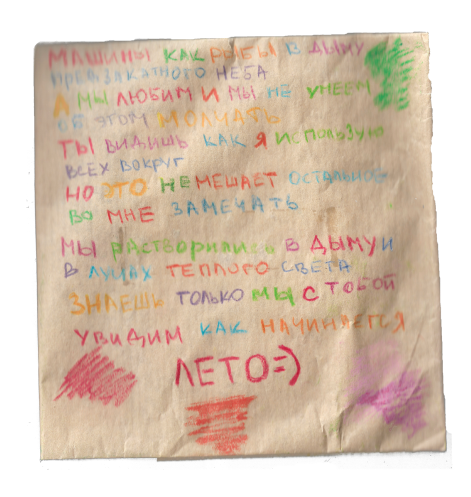 МАШИНЫ КАК РЫБЫ В ДЫМУ
ПРЕДЗАКАТНОГО НЕБА
А МЫ ЛЮБИМ И МЫ НЕ УМЕЕМ
ОБ ЭТОМ МОЛЧАТЬ
ТЫ ВИДИШЬ КАК Я ИСПОЛЬЗУЮ
ВСЕХ ВОКРУГ
НО ЭТО НЕМЕШАЕТ ОСТАЛЬНОЕ
ВО МНЕ ЗАМЕЧАТЬ
МЫ РАСТВОРИЛИСЬ В ДЫМУ И
В ЛУЧАХ ТЕПЛОГО СВЕТА
ЗНАЕШЬ ТОЛЬКО МЫ С ТОБОЙ
УВИДИМ КАК НАЧИНАЕТСЯ
ЛЕТО=)